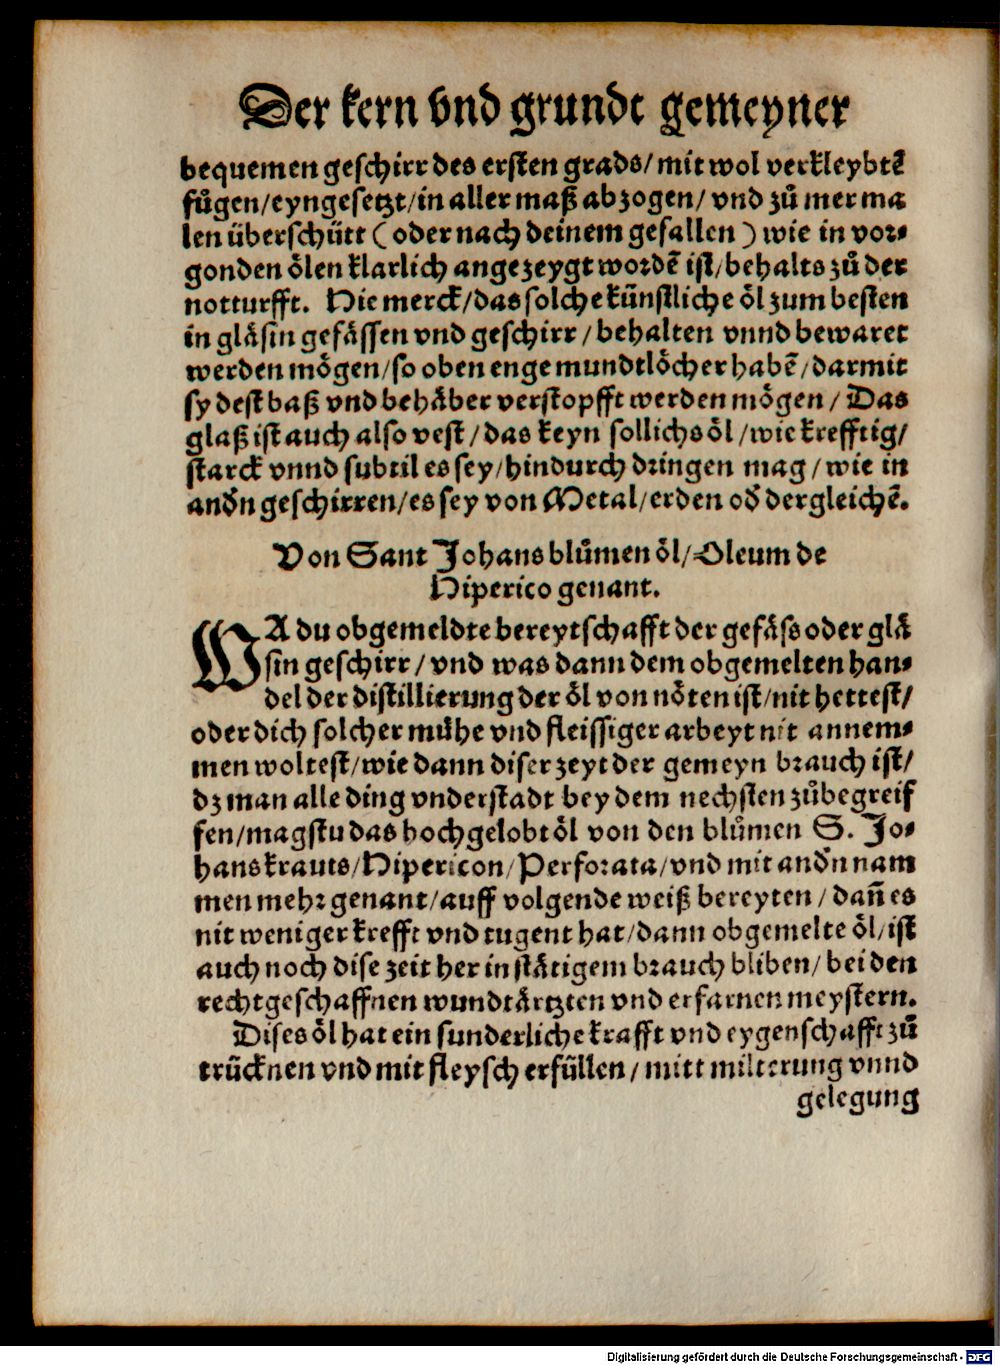 Der kern vnd grundt gemeyner
bequemen geschirr des ersten grads/ mit wol verkleybtē
fůgen/eyngesetzt/in aller maß abzogen/ vnd zů mer ma
len überschütt (oder nach deinem gefallen) wie in vor⸗
gonden ölen klarlich angezeygt wordē ist/behalts zů der
notturfft. Hie merck/das solche künstliche öl zum besten
in gläsin gefässen vnd geschirr/behalten vnnd bewaret
werden mögen/so oben enge mundtlöcher habē/darmit
sy dest baß vnd behäber verstopfft werden mögen/ Das
glaß ist auch also vest/das keyn sollichs öl/wie krefftig/
starck vnnd subtil es sey/hindurch dringen mag/wie in
andn̄ geschirren/es sey von Metal/erden od̄ dergleichē.
Von Sant Johans blůmen öl/Oleum de
Hiperico genant.
WA du obgemeldte bereytschafft der gefäss oder glä
sin geschirr/vnd was dann dem obgemelten han⸗
del der distillierung der öl von nöten ist/nit hettest/
oder dich solcher mühe vnd fleissiger arbeyt nit annem⸗
men woltest/wie dann diser zeyt der gemeyn brauch ist/
dz man alle ding vnderstadt bey dem nechsten zůbegreif
fen/magstu das hochgelobt öl von den blůmen S. Jo⸗
hanskrauts/Hipericon/Perforata/vnd mit andn̄ nam
men mehr genant/auff volgende weiß bereyten/dañ es
nit weniger krefft vnd tugent hat/dann obgemelte öl/ist
auch noch dise zeit her in stätigem brauch bliben/bei den
rechtgeschaffnen wundtärtzten vnd erfarnen meystern.
Dises öl hat ein sunderliche krafft vnd eygenschafft zů
trücknen vnd mit fleysch erfüllen/mitt milterung vnnd
gelegung
Digitalisierung gefördert durch die Deutsche Forschungsgemeinschaft - DFG